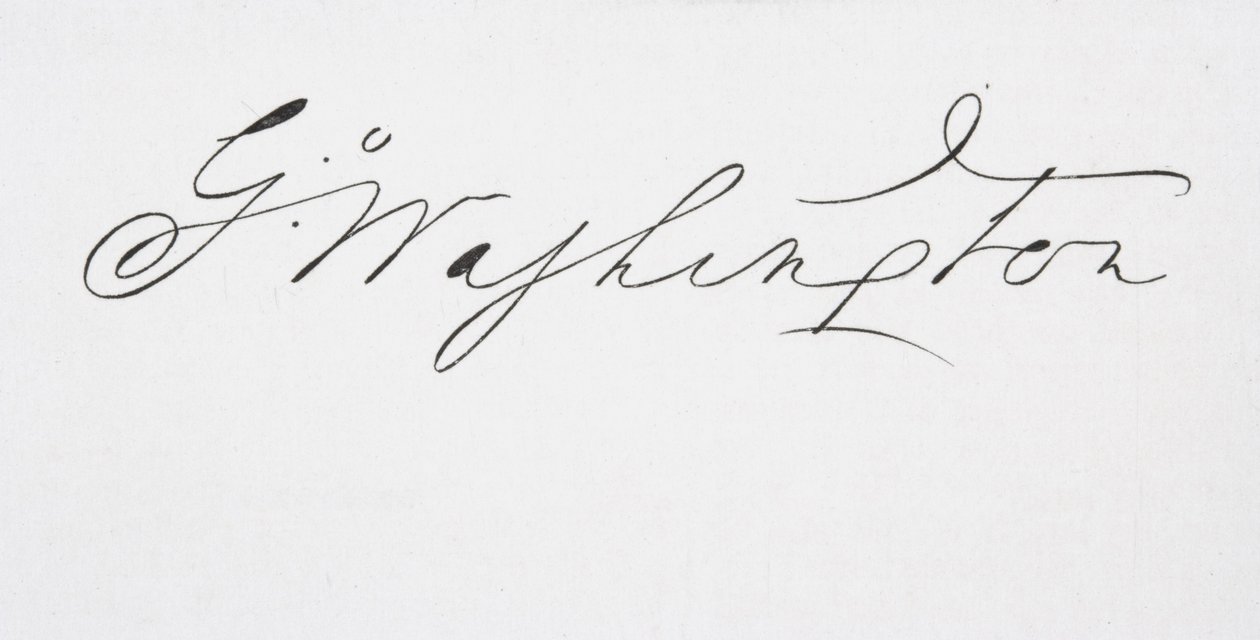 G:º Washington